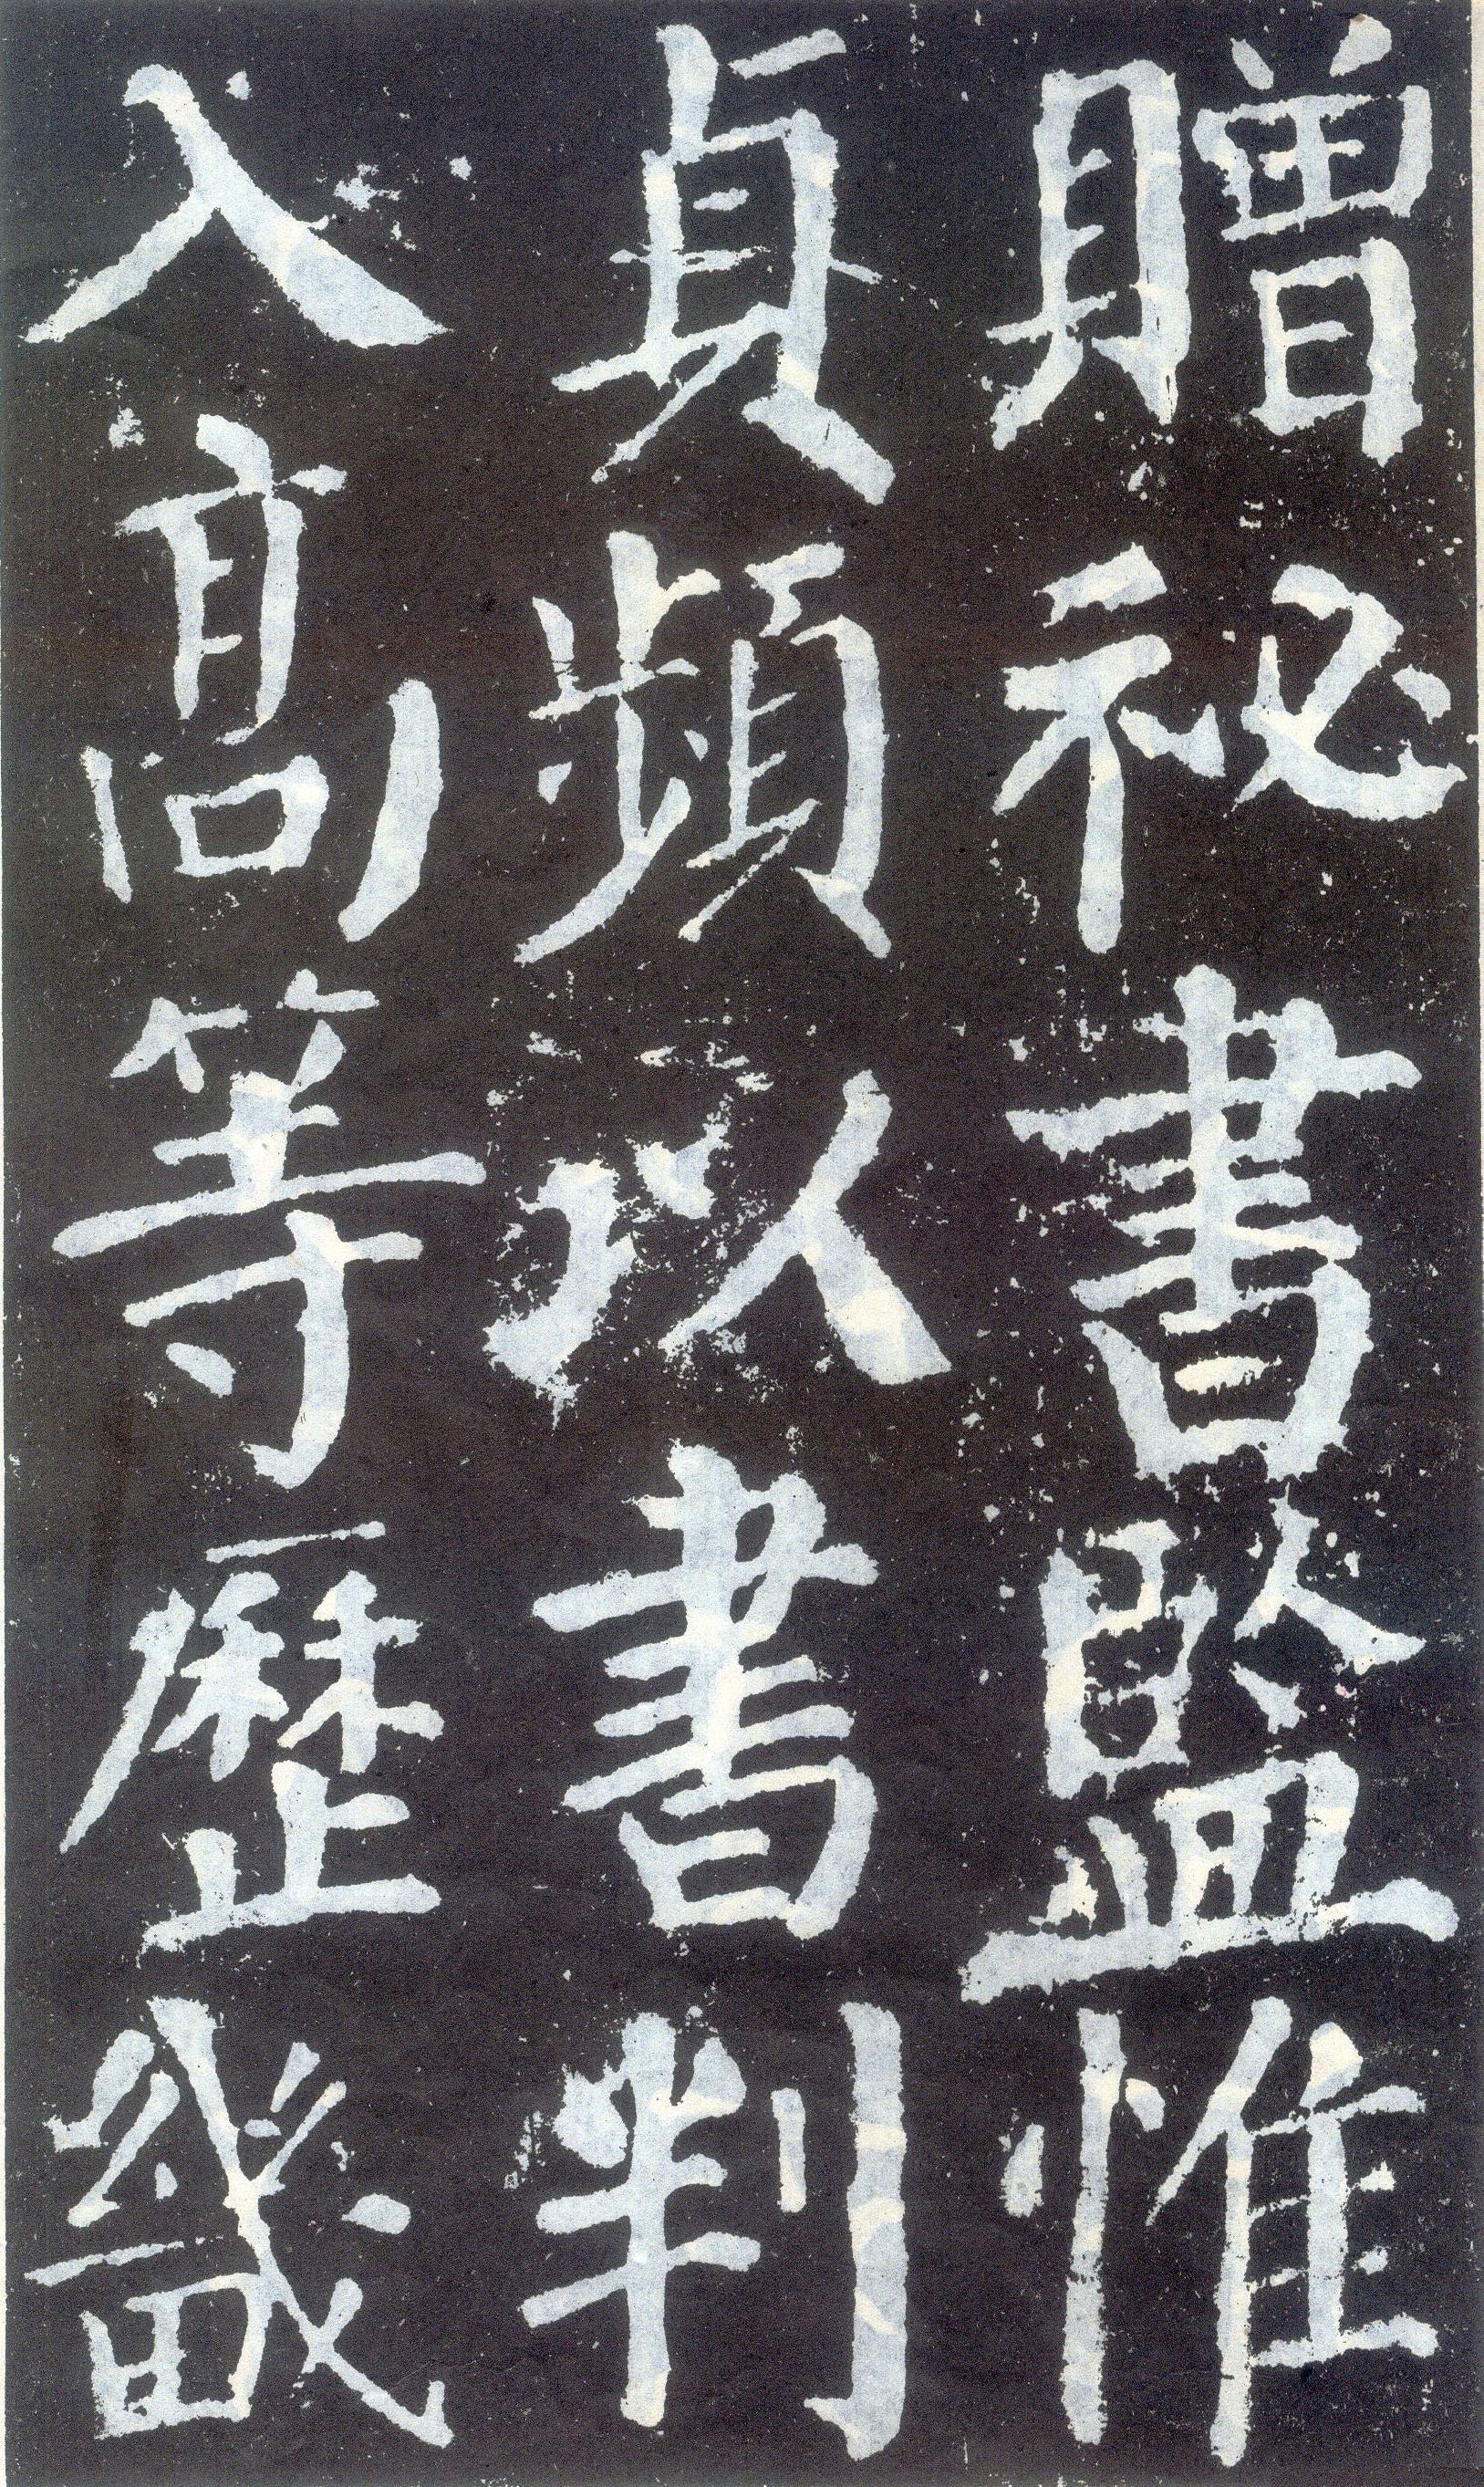 贈祕書監惟
貞頻以書判
入高等歷畿